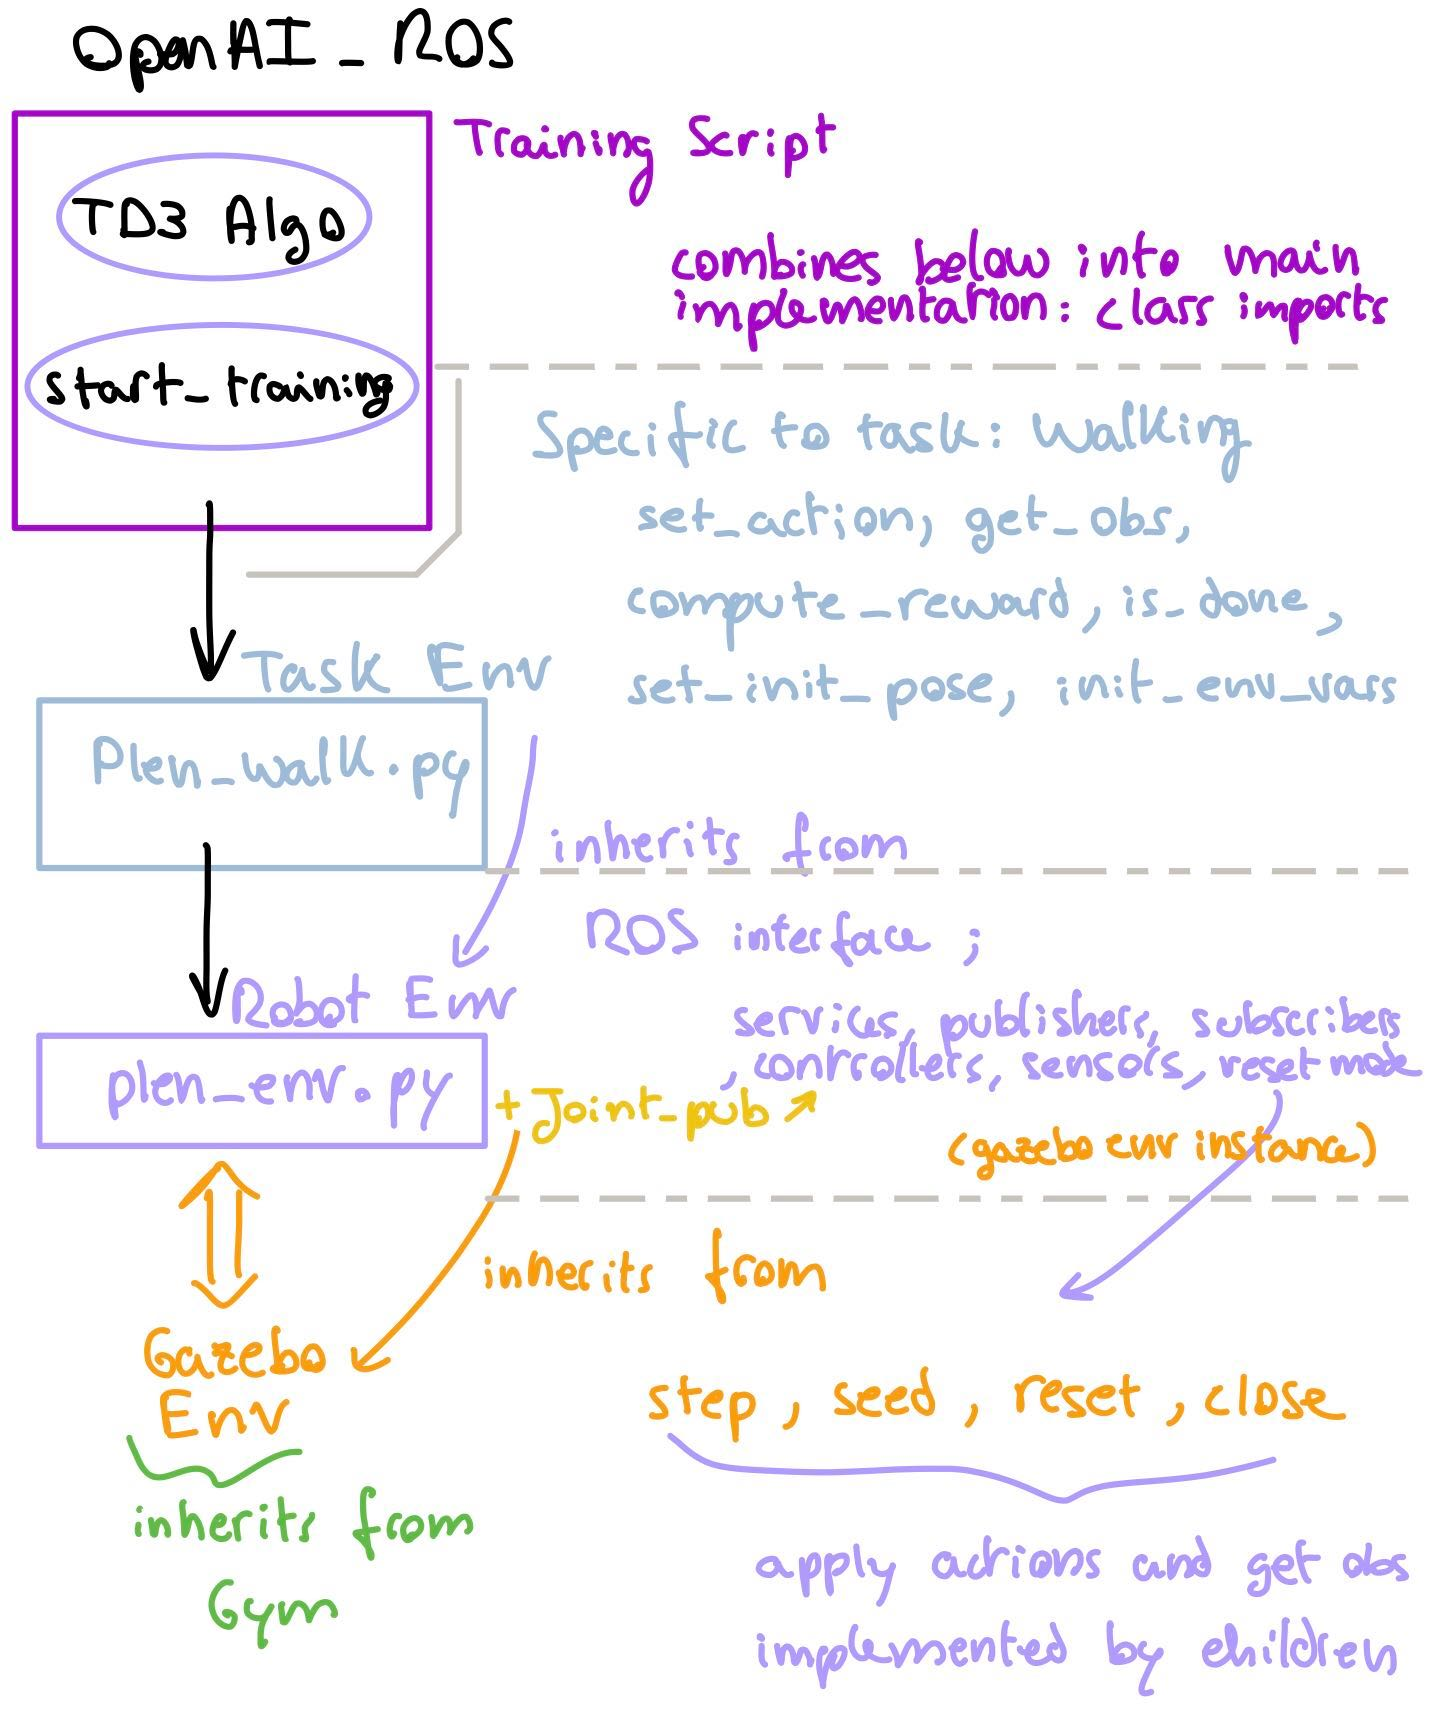 OpenAI_ROS
Training Script
TD3 Algo
combines below into main
implementation: class imports
start_training
Specific to task: Walking
set_action, get_obs,
compute_reward, is_done,
set_init_pose, init_env_vars
Task Env
Plen_walk.py
inherits from
ROS interface ;
services, publishers, subscribers
, controllers, sensors, reset mode
Robot Env
plen_env.py
+ Joint_pub ↗
(gazebo env instance)
inherits from
Gazebo
Env
step, seed, reset, close
inherits from
Gym
apply actions and get obs
implemented by children